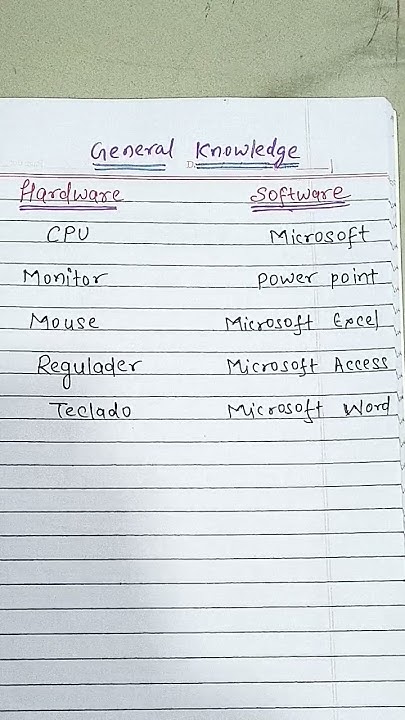 General Knowledge
Hardware Software
CPU Microsoft
Monitor power point
Mouse Microsoft Excel
Regulader Microsoft Access
Teclado Microsoft Word